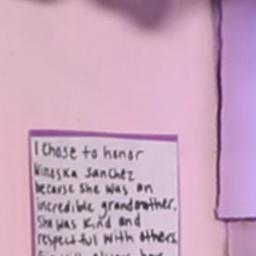 I chose to honor
Winoska Sanchez
because she was an
incredible grandmother.
She was kind and
respectful with others.